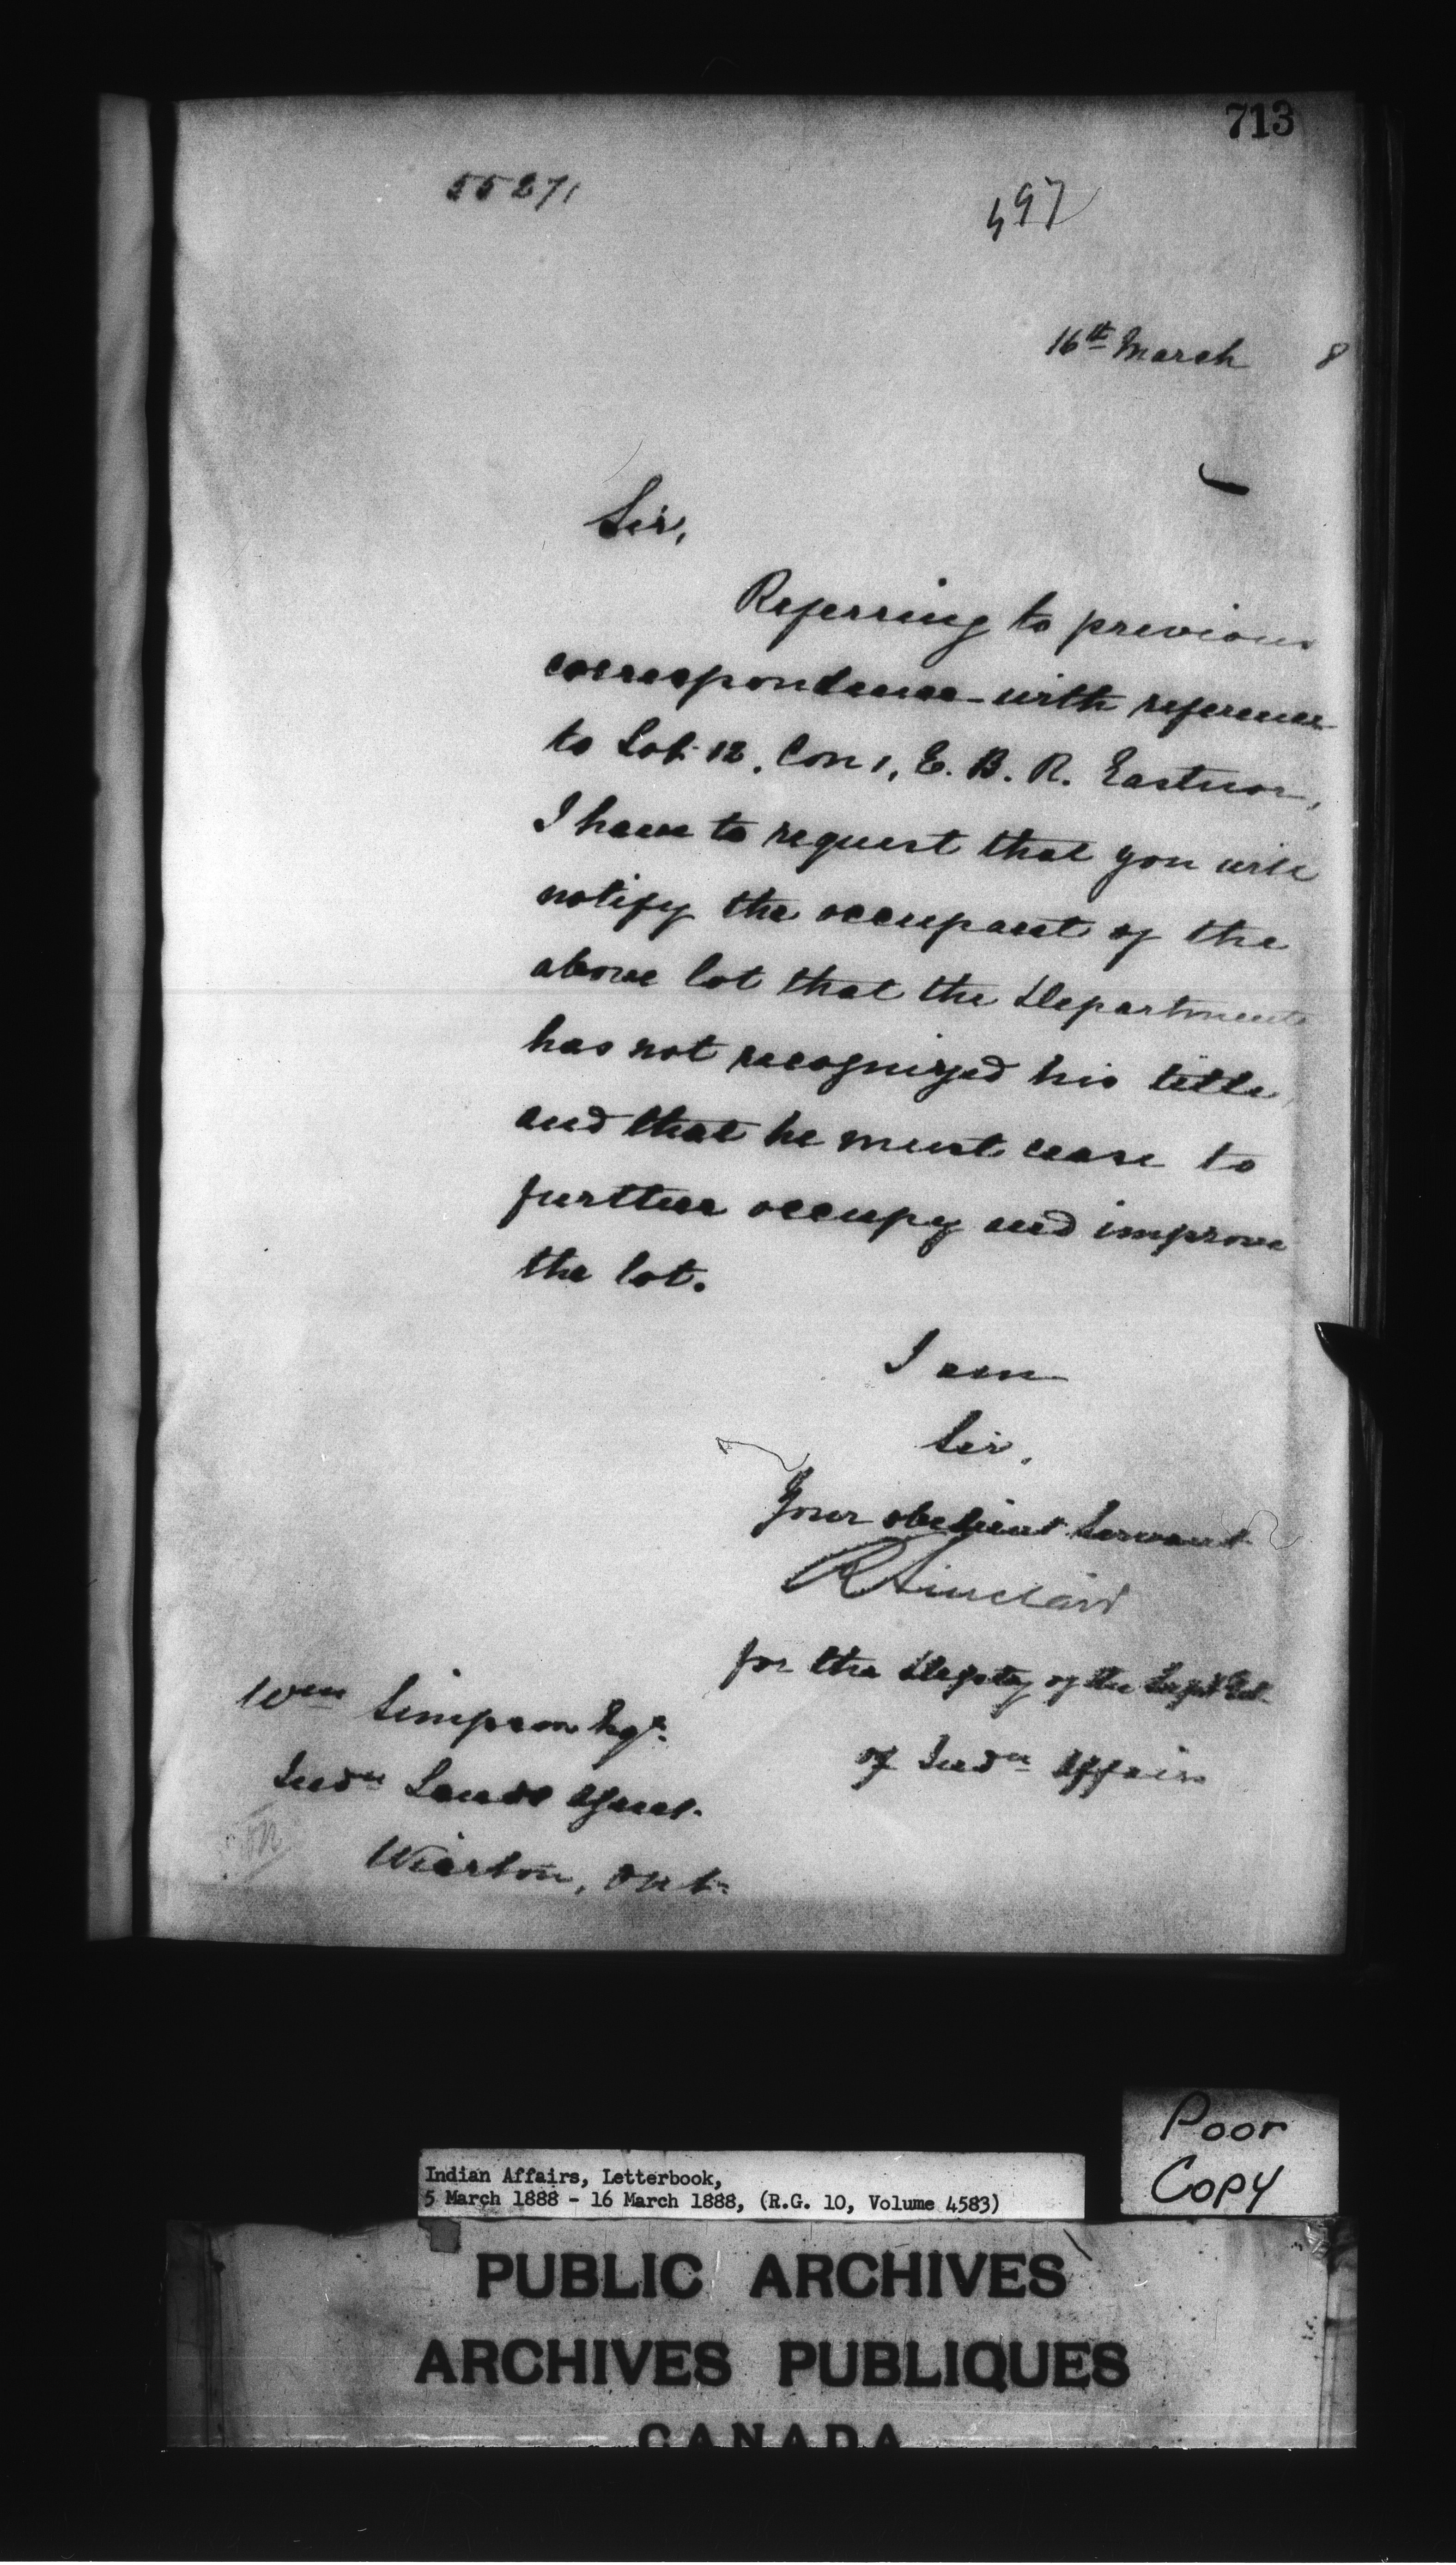 713
55271
497
16th March 8
Sir,
Referring to previous
correspondence with reference
to Lot 12, Con 1, E. B. R. Eastnor,
I have to request that you will
notify the occupant of the
above lot that the Department
has not recognized his title,
and that he must cease to
further occupy and improve
the lot.
I am
Sir,
Your obedient Servant
R Sinclair
for the Deputy of the Supt Genl
of Indn Affairs
Wm Simpson Esqr.
Indn Lands Agent.
Wiarton, Ont.
Poor
Copy
Indian Affairs, Letterbook,
5 March 1888 - 16 March 1888, (R.G. 10, Volume 4583)
PUBLIC ARCHIVES
ARCHIVES PUBLIQUES
CANADA